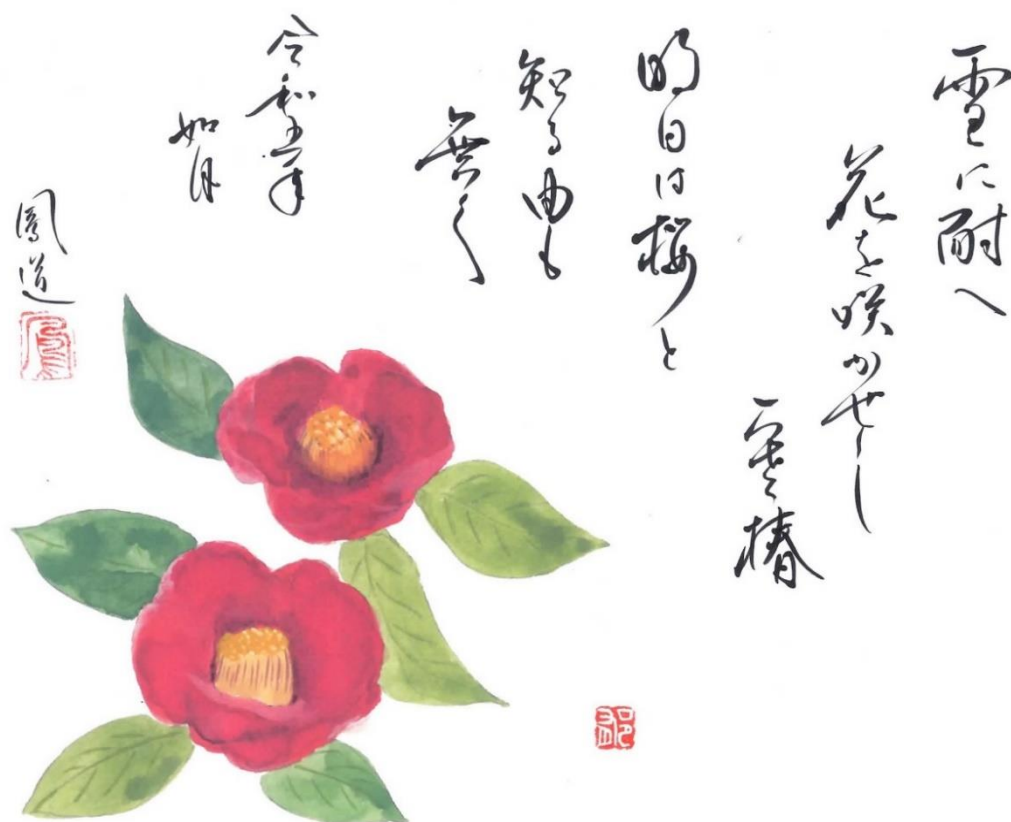 雪に耐へ
花を咲かせし
寒椿
明日は桜と
知る由も
無く
令和五年
如月
鳳道